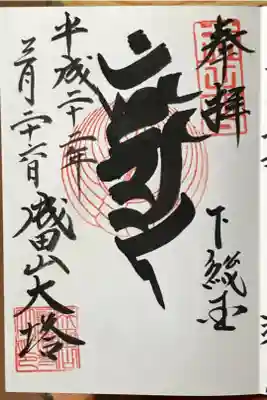 奉拝
下総国
平成二十二年
月二十六日 成田山大塔